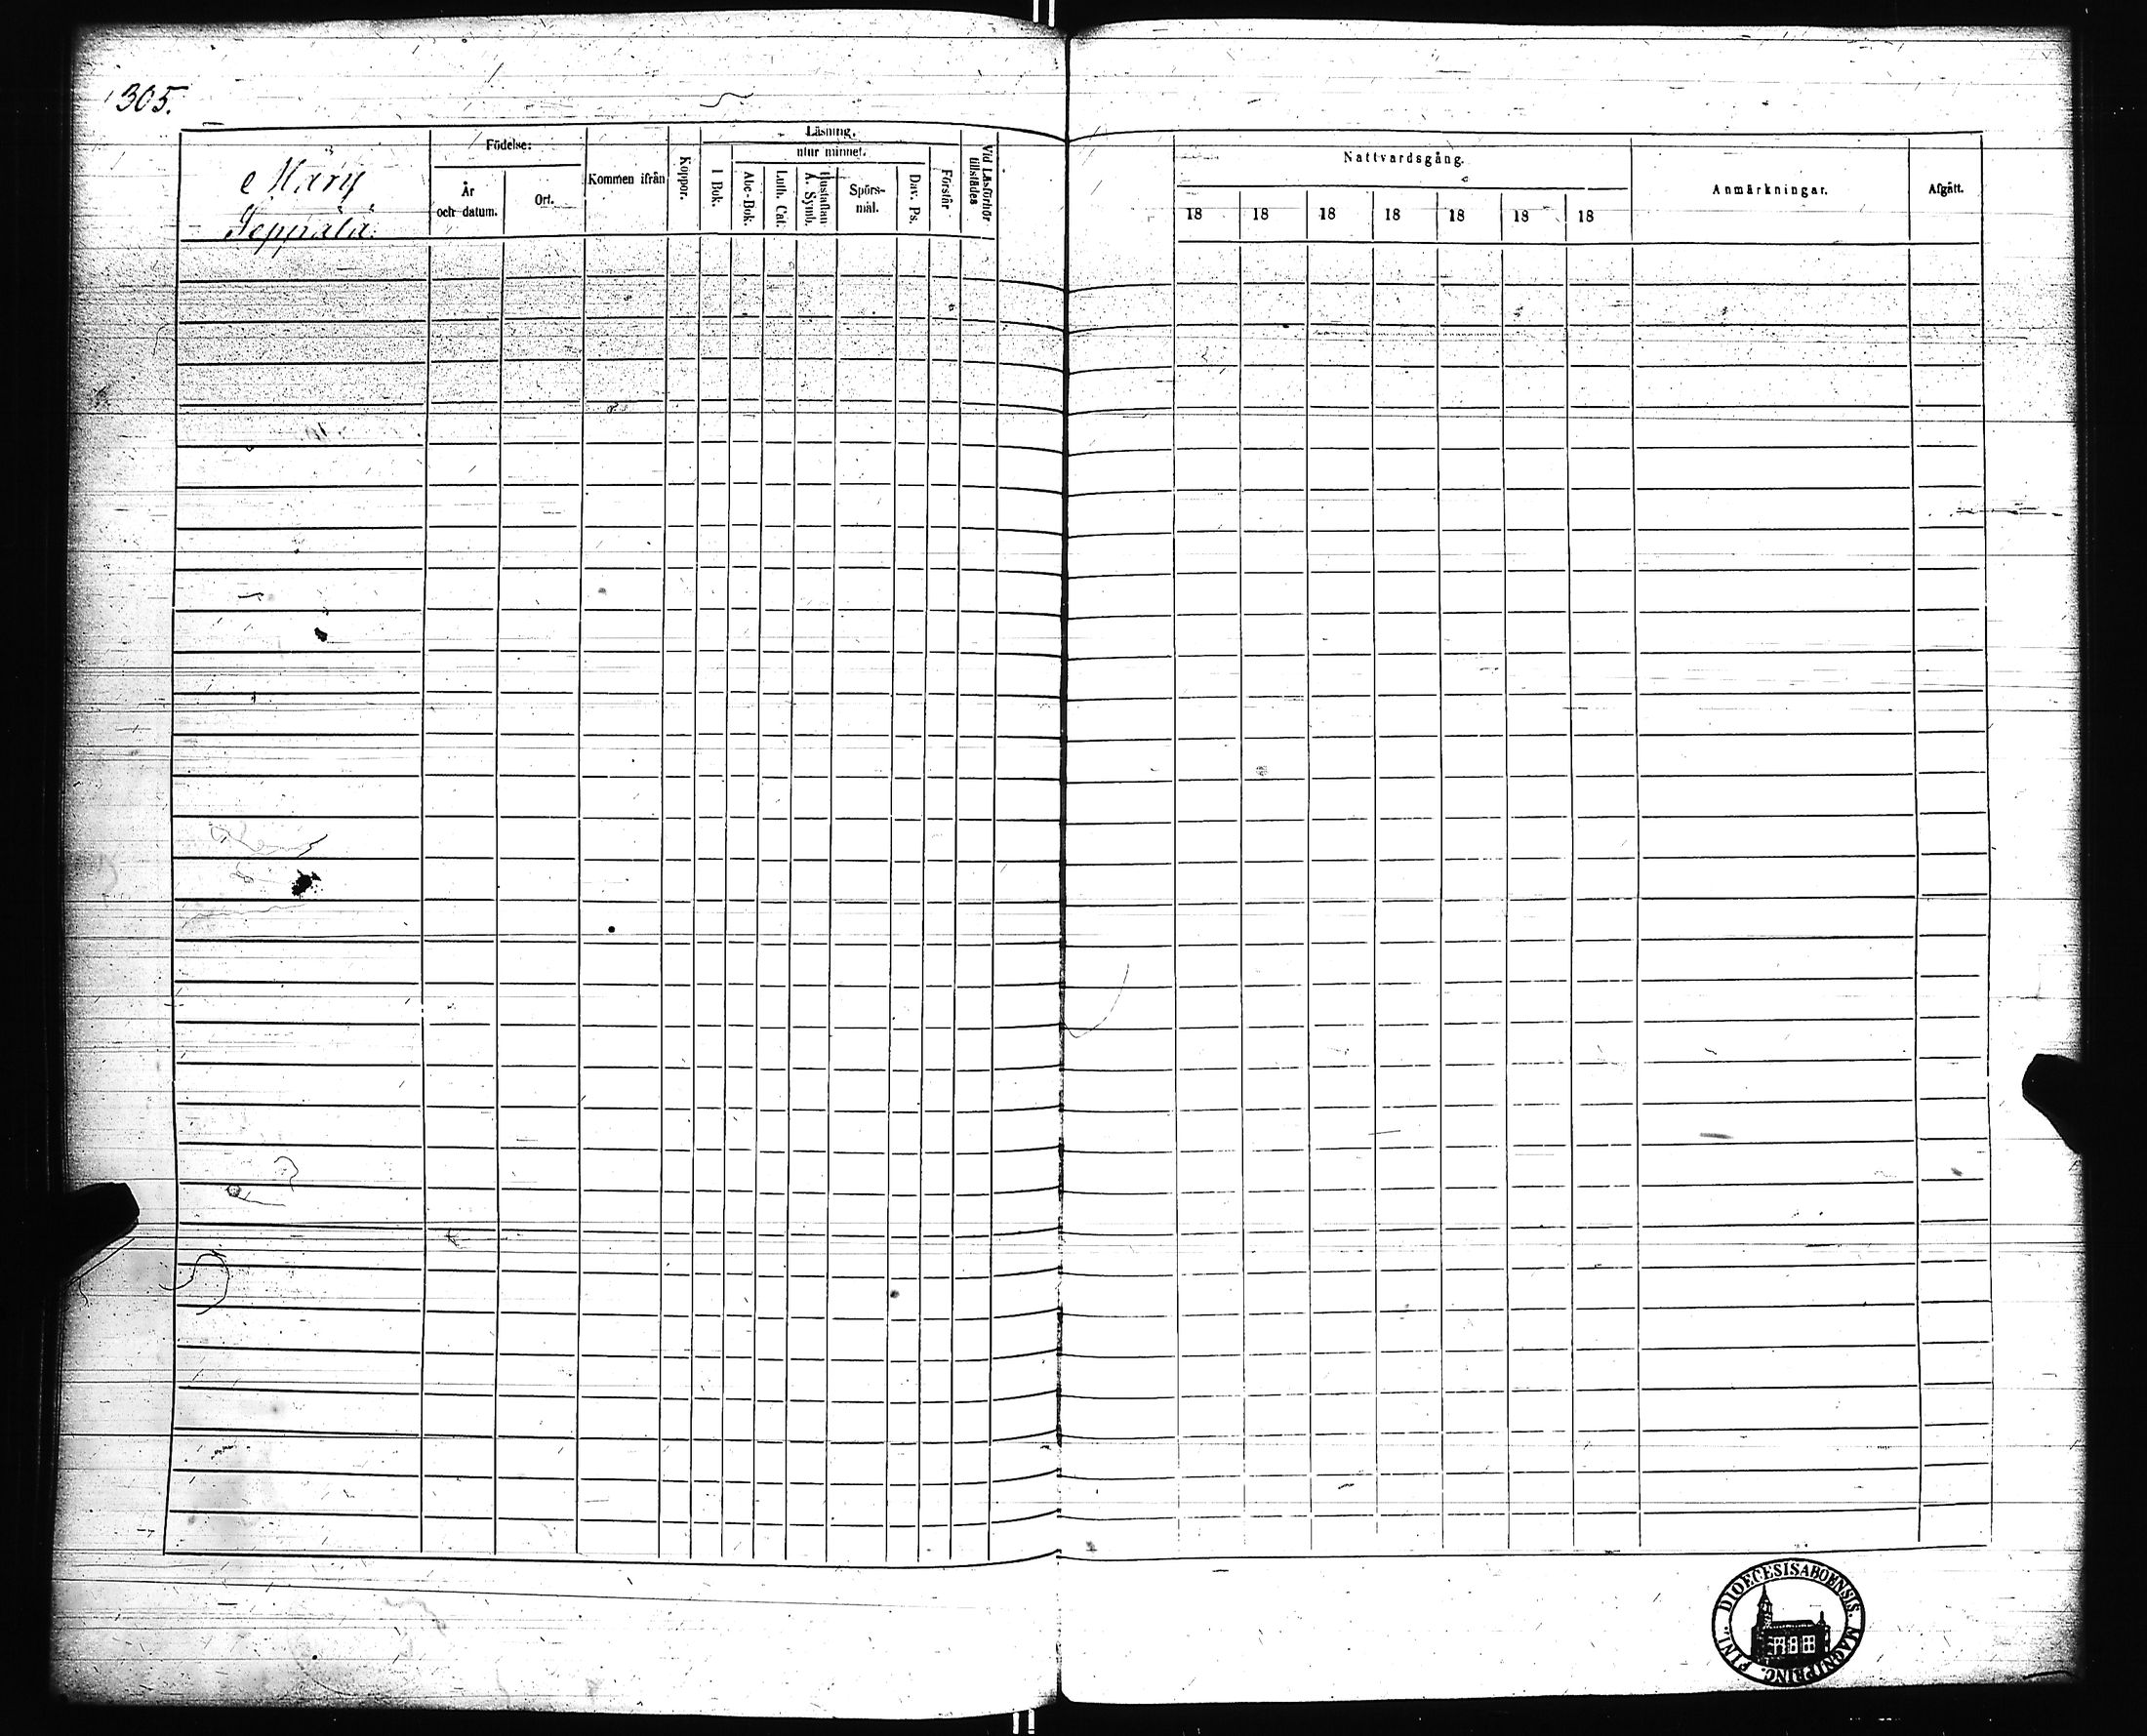 305.
Märy
Seppälä.
Födelse:
År
och datum.
Ort.
Kommen ifrån
Koppor.
Läsning.
I Bok.
utur minnet.
Abc-Bok.
Luth. Cat.
Hustaflan
A. Symb.
Spörs-
mål.
Dav. Ps.
Förstår
Vid Läsförhör
tillstädes
Nattvardsgång.
18 18 18 18 18 18 18
Anmärkningar.
Afgått.
DIOECESIS ABOENSIS. MAGNI PRINC. FINL.